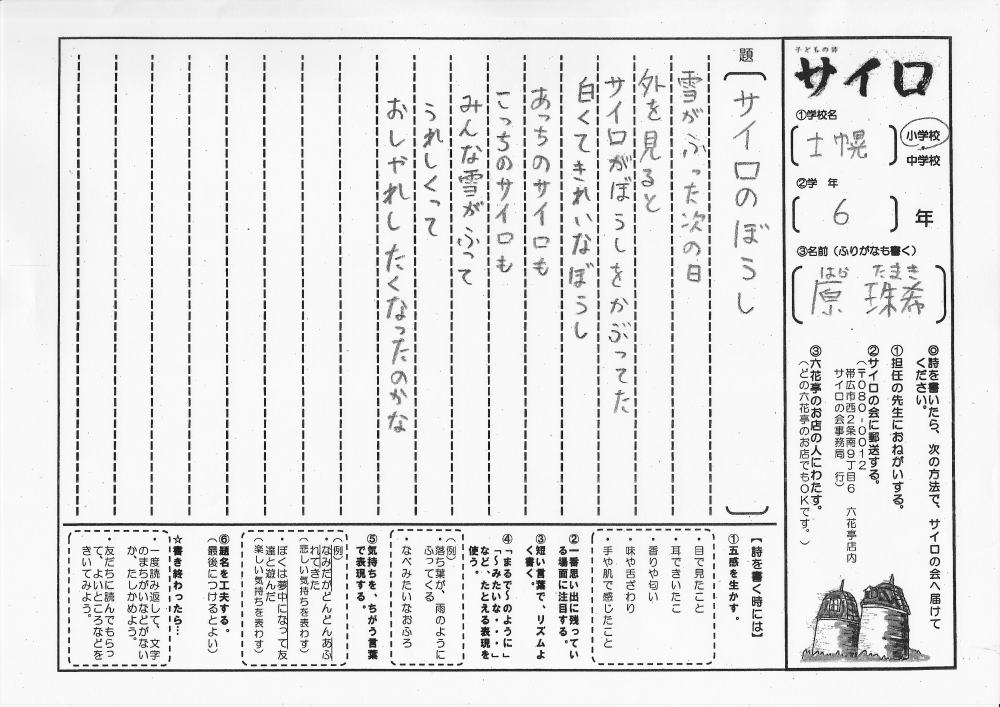 子どもの詩
サイロ
①学校名
士幌
小学校
・
中学校
②学　年
6
年
③名前（ふりがなも書く）
はら　たまき
原　珠希
◎詩を書いたら、次の方法で、サイロの会へ届けて
ください。
①担任の先生におねがいする。
②サイロの会に郵送する。
（〒080-0012
帯広市西2条南9丁目6　六花亭店内
サイロの会事務局　行）
③六花亭のお店の人にわたす。
（どの六花亭のお店でもOKです。）
題
サイロのぼうし
雪がふった次の日
外を見ると
サイロがぼうしをかぶってた
白くてきれいなぼうし
あっちのサイロも
こっちのサイロも
みんな雪がふって
うれしくって
おしゃれしたくなったのかな
【詩を書く時には】
①五感を生かす。
・目で見たこと
・耳できいたこ
・香りや匂い
・味や舌ざわり
・手や肌で感じたこと
②一番思い出に残ってい
る場面に注目する。
③短い言葉で、リズムよ
く書く。
④「まるで～のように」
「～みたいな・・・」
など、たとえる表現を
使う。
（例）
・落ち葉が、雨のように
ふってくる
・なべみたいなおふろ
⑤気持ちを、ちがう言葉
で表現する。
（例）
・なみだがどんどんあふ
れてきた
（悲しい気持ちを表わす）
・ぼくは夢中になって友
達と遊んだ
（楽しい気持ちを表わす）
⑥題名を工夫する。
（最後につけるとよい）
☆書き終わったら…
・一度読み返して、文字
のまちがいなどがない
か、たしかめよう。
・友だちに読んでもらっ
て、よいところなどを
きいてみよう。